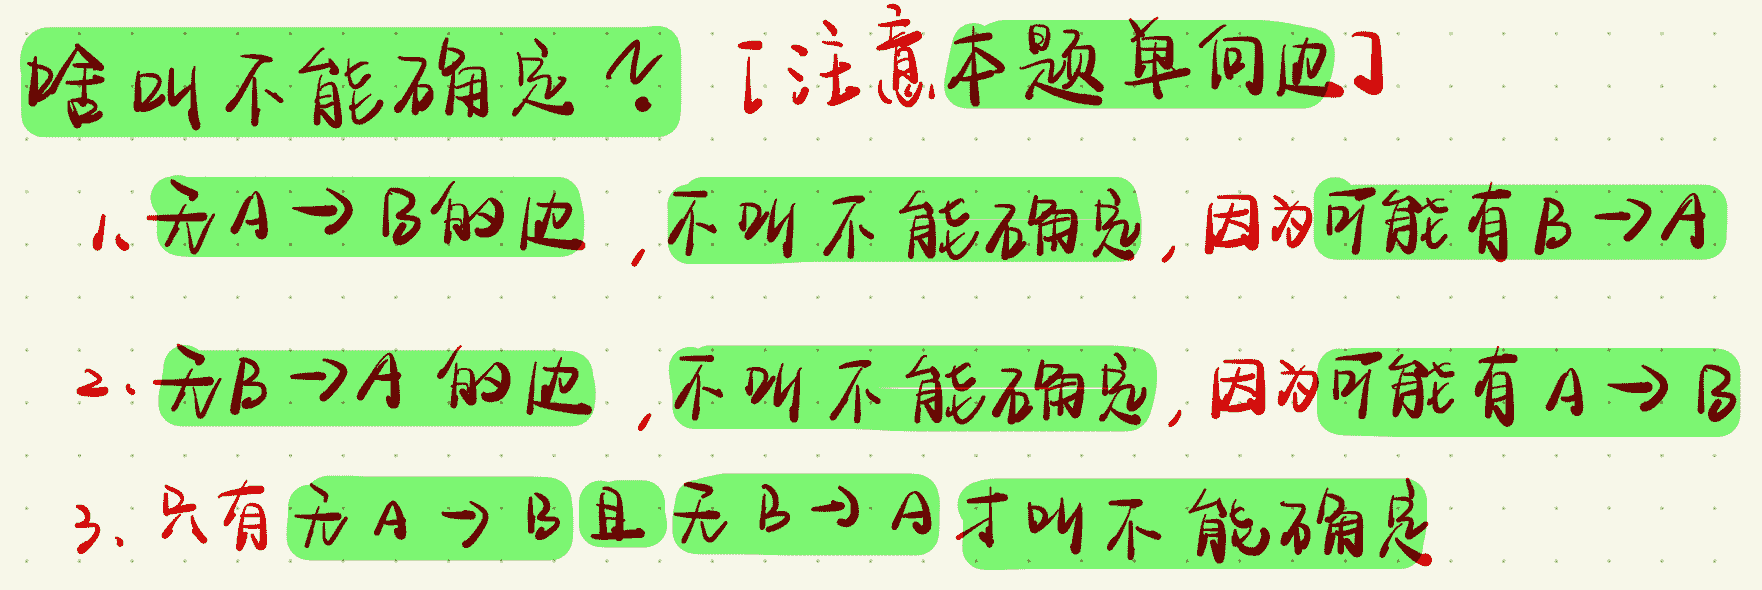 啥叫不能确定？ [注意本题单向边]
1、无A→B的边，不叫不能确定，因为可能有B→A
2、无B→A的边，不叫不能确定，因为可能有A→B
3、只有无A→B且无B→A才叫不能确定